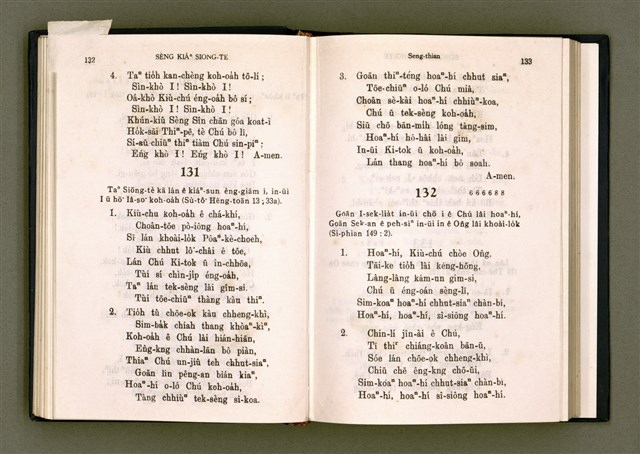 132
SÈNG KIÁⁿ SIONG-TE
4. Taⁿ tiȯh kan-chèng koh-oȧh tō-lí ;
Sìn-khò I! Sìn-khò I!
Oá-khò Kiù-chú éng-oȧh bô sí ;
Sìn-khò I! Sìn-khò I!
Khún-kiû Sèng Sîn chān góa koat-ì
Hȯk-sāi Thiⁿ-pē, tè Chú bô lī,
Sí-sū chiūⁿ thiⁿ tiàm Chú sin-piⁿ ;
Eńg khò I! Eńg khò I! A-men.
131
Taⁿ Siōng-tè kā lán ê kiáⁿ-sun èng-giām i, in-ūi
I ū hō͘ Iâ-so͘ koh-oȧh (Sù-tô͘ Hēng-toān 13 ; 33a).
1. Kiù-chu koh-oȧh ê chá-khí,
Choân-tōe pō-iông hoaⁿ-hí,
Si lán khoài-lȯk Pôaⁿ-kè-choeh,
Kiù chhut lô͘-châi ê tōe,
Lán Chú Ki-tok ū ín-chhōa,
Tùi sí chìn-jip éng-oȧh,
Taⁿ lán tek-sèng lāi gîm-si.
Tùi tōe-chiūⁿ thàng kàu thiⁿ.
2. Tiȯh tù chōe-ok kàu chheng-khì,
Sim-bȧk chiah thang khòaⁿ-kìⁿ,
Koh-oȧh ê Chú lâi hián-hiān,
Eńg-kng chhàn-lān bô piàn,
Thiaⁿ Chú un-jiû teh chhut-siaⁿ,
Goān lín pêng-an bián kiaⁿ,
Hoaⁿ-hí o-ló Chú koh-oȧh,
Tàng chhiùⁿ tek-sèng si-koa.
Seng-thian
133
3. Goān thiⁿ-téng hoaⁿ-hí chhut siaⁿ,
Tōe-chiūⁿ o-ló Chú miâ,
Choân sè-kài hoaⁿ-hí chhiùⁿ-koa,
Chú ū tek-sèng koh-oȧh,
Siū chō bān-mih lóng tàng-sim,
Hoaⁿ-hí hô-hâi lâi gîm,
In-ūi Ki-tok ū koh-oȧh,
Lán thang hoaⁿ-hí bô soah.
A-men.
132 666688
Goān I-sek-liȧt in-ūi chō i ê Chú lâi hoaⁿ-hí,
Goān Sek-an ê peh-sìⁿ in-ūi in ê Ông lâi khoài-lȯk
(Si-phian 149 : 2).
1. Hoaⁿ-hí, Kiù-chú chòe Ông,
Tāi-ke tiȯh lâi kéng-hông,
Lâng-lâng kám-un gîm-si,
Chú ū éng-oán sèng-lī,
Sim-koaⁿ hoaⁿ-hí chhut-siaⁿ chàn-bí,
Hoaⁿ-hí, hoaⁿ-hí, sì-siông hoaⁿ-hí.
2. Chin-lí jîn-ài ê Chú,
Tī thiⁿ chiáng-koân bān-ū,
Sóe lán chōe-ok chheng-khì,
Chiū chē êng-kng chō-ūi,
Sim-koaⁿ hoaⁿ-hí chhut-siaⁿ chàn-bí,
Hoaⁿ-hí, hoaⁿ-hí sì-siông hoaⁿ-hí.